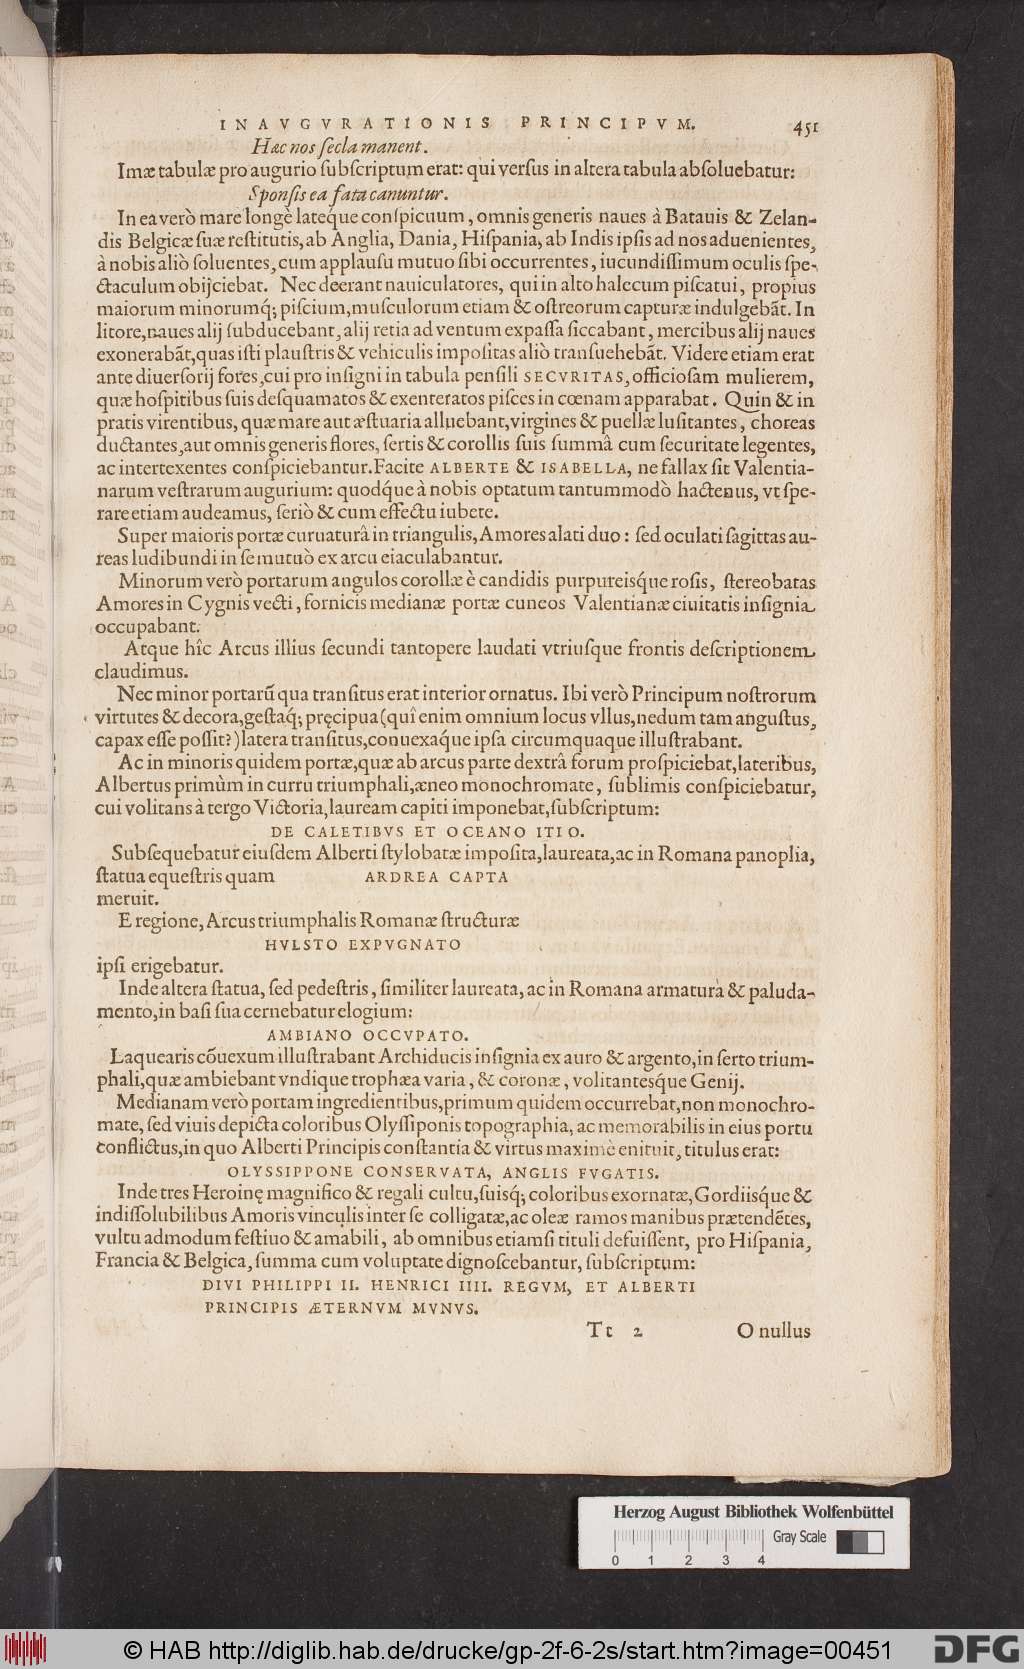 INAVGVRATIONIS PRINCIPVM. 451
Hac nos secla manent.
Imæ tabulæ pro augurio subscriptum erat: qui versus in altera tabula absoluebatur:
Sponsis ea fata canuntur.
In ea verò mare longè latéque conspicuum, omnis generis naues à Batauis & Zelan-
dis Belgicæ suæ restitutis, ab Anglia, Dania, Hispania, ab Indis ipsis ad nos aduenientes,
à nobis aliò soluentes, cum applausu mutuo sibi occurrentes, iucundissimum oculis spe-
ctaculum obijciebat. Nec deerant nauiculatores, qui in alto halecum piscatui, propius
maiorum minorumq́; piscium, musculorum etiam & ostreorum capturæ indulgebāt. In
litore, naues alij subducebant, alij retia ad ventum expassa siccabant, mercibus alij naues
exonerabāt, quas isti plaustris & vehiculis impositas aliò transuehebāt. Videre etiam erat
ante diuersorij fores, cui pro insigni in tabula pensili SECVRITAS, officiosam mulierem,
quæ hospitibus suis desquamatos & exenteratos pisces in cœnam apparabat. Quin & in
pratis virentibus, quæ mare aut æstuaria alluebant, virgines & puellæ lusitantes, choreas
ductantes, aut omnis generis flores, sertis & corollis suis summâ cum securitate legentes,
ac intertexentes conspiciebantur. Facite ALBERTE & ISABELLA, ne fallax sit Valentia-
narum vestrarum augurium: quodq́ue à nobis optatum tantummodò hactenus, vt spe-
rare etiam audeamus, seriò & cum effectu iubete.
Super maioris portæ curuaturâ in triangulis, Amores alati duo: sed oculati sagittas au-
reas ludibundi in se mutuò ex arcu eiaculabantur.
Minorum verò portarum angulos corollæ è candidis purpureisq́ue rosis, stereobatas
Amores in Cygnis vecti, fornicis medianæ portæ cuneos Valentianæ ciuitatis insignia
occupabant.
Atque hîc Arcus illius secundi tantopere laudati vtriusque frontis descriptionem
claudimus.
Nec minor portarū qua transitus erat interior ornatus. Ibi verò Principum nostrorum
virtutes & decora, gestaq́; pręcipua (quî enim omnium locus vllus, nedum tam angustus,
capax esse possit?) latera transitus, conuexaq́ue ipsa circumquaque illustrabant.
Ac in minoris quidem portæ, quæ ab arcus parte dextrâ forum prospiciebat, lateribus,
Albertus primùm in curru triumphali, æneo monochromate, sublimis conspiciebatur,
cui volitans à tergo Victoria, lauream capiti imponebat, subscriptum:
DE CALETIBVS ET OCEANO ITIO.
Subsequebatur eiusdem Alberti stylobatæ imposita, laureata, ac in Romana panoplia,
statua equestris quam ARDREA CAPTA
meruit.
E regione, Arcus triumphalis Romanæ structuræ
HVLSTO EXPVGNATO
ipsi erigebatur.
Inde altera statua, sed pedestris, similiter laureata, ac in Romana armatura & paluda-
mento, in basi sua cernebatur elogium:
AMBIANO OCCVPATO.
Laquearis cōuexum illustrabant Archiducis insignia ex auro & argento, in serto trium-
phali, quæ ambiebant vndique trophæa varia, & coronæ, volitantesq́ue Genij.
Medianam verò portam ingredientibus, primum quidem occurrebat, non monochro-
mate, sed viuis depicta coloribus Olyssiponis topographia, ac memorabilis in eius portu
conflictus, in quo Alberti Principis constantia & virtus maximè enituit, titulus erat:
OLYSSIPPONE CONSERVATA, ANGLIS FVGATIS.
Inde tres Heroinę magnifico & regali cultu, suisq́; coloribus exornatæ, Gordiisq́ue &
indissolubilibus Amoris vinculis inter se colligatæ, ac oleæ ramos manibus prætendētes,
vultu admodum festiuo & amabili, ab omnibus etiamsi tituli defuissent, pro Hispania,
Francia & Belgica, summa cum voluptate dignoscebantur, subscriptum:
DIVI PHILIPPI II. HENRICI IIII. REGVM, ET ALBERTI
PRINCIPIS ÆTERNVM MVNVS.
Tt 2 O nullus
Herzog August Bibliothek Wolfenbüttel
Gray Scale
0 1 2 3 4
© HAB http://diglib.hab.de/drucke/gp-2f-6-2s/start.htm?image=00451 DFG